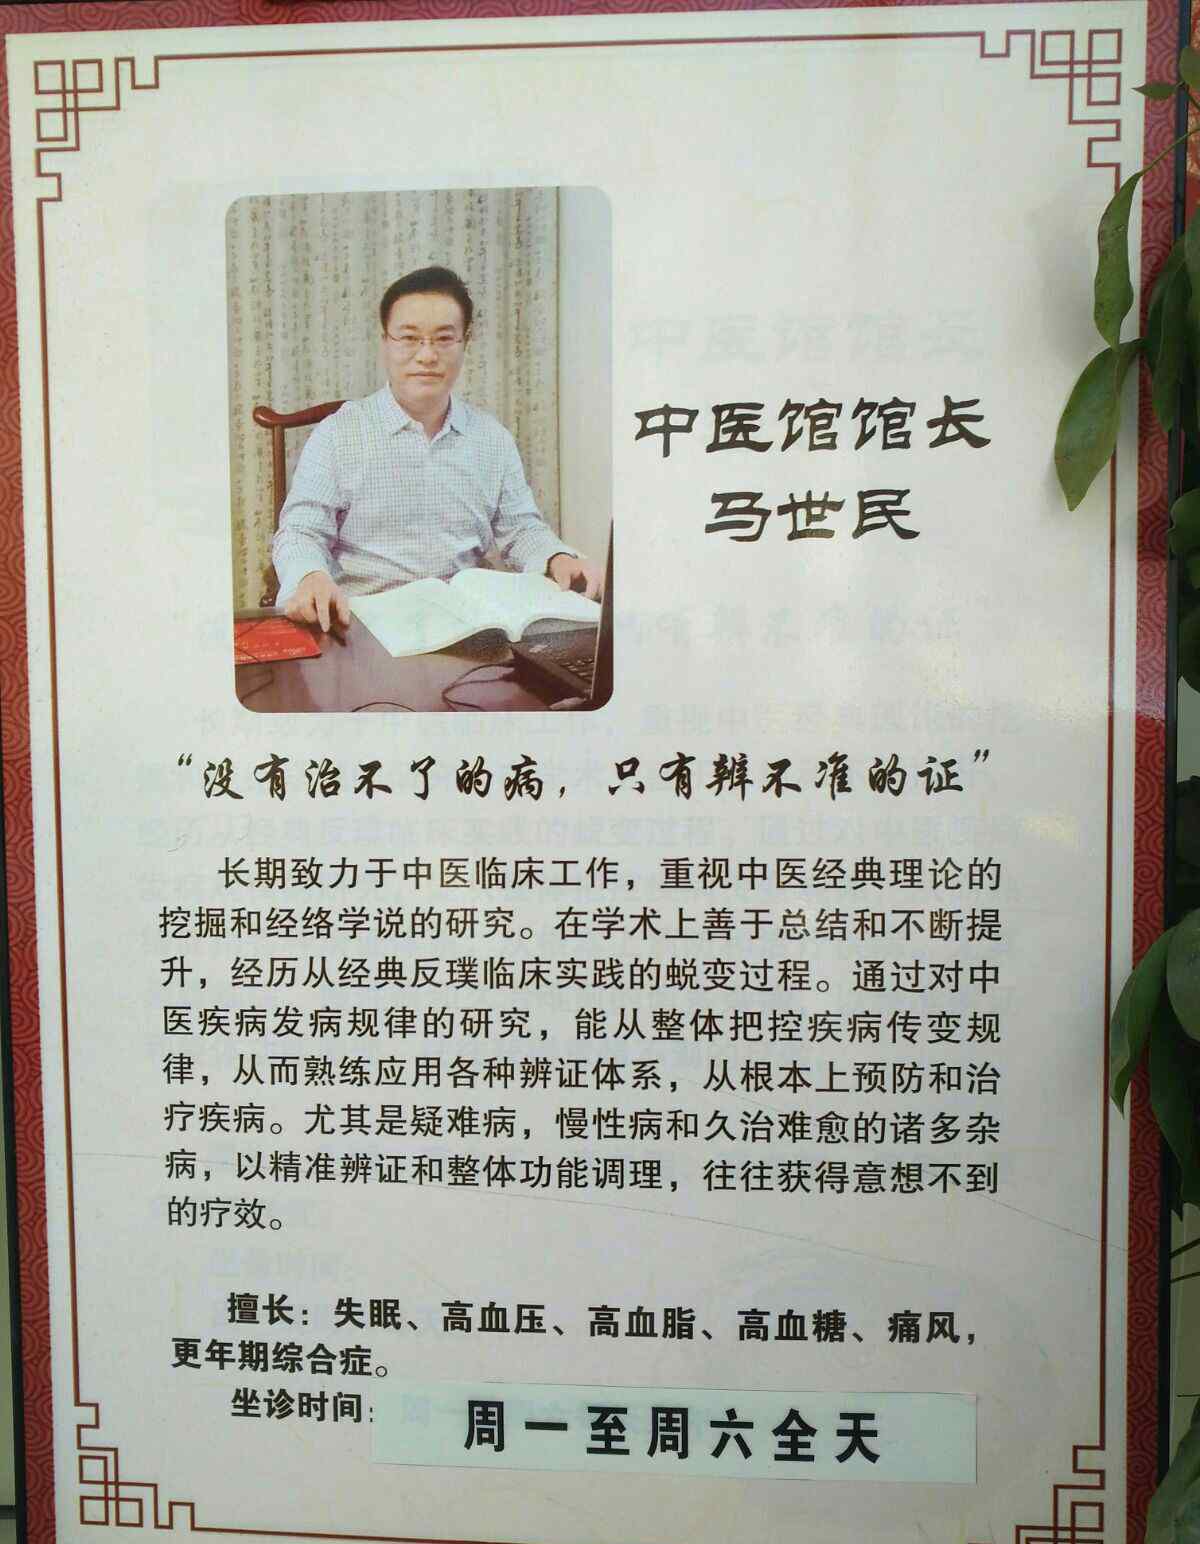 中医馆馆长
马世民
“没有治不了的病，只有辨不准的证”
长期致力于中医临床工作，重视中医经典理论的
挖掘和经络学说的研究。在学术上善于总结和不断提
升，经历从经典反璞临床实践的蜕变过程。通过对中
医疾病发病规律的研究，能从整体把控疾病传变规
律，从而熟练应用各种辨证体系，从根本上预防和治
疗疾病。尤其是疑难病，慢性病和久治难愈的诸多杂
病，以精准辨证和整体功能调理，往往获得意想不到
的疗效。
擅长：失眠、高血压、高血脂、高血糖、痛风，
更年期综合症。
坐诊时间：周一至周六全天